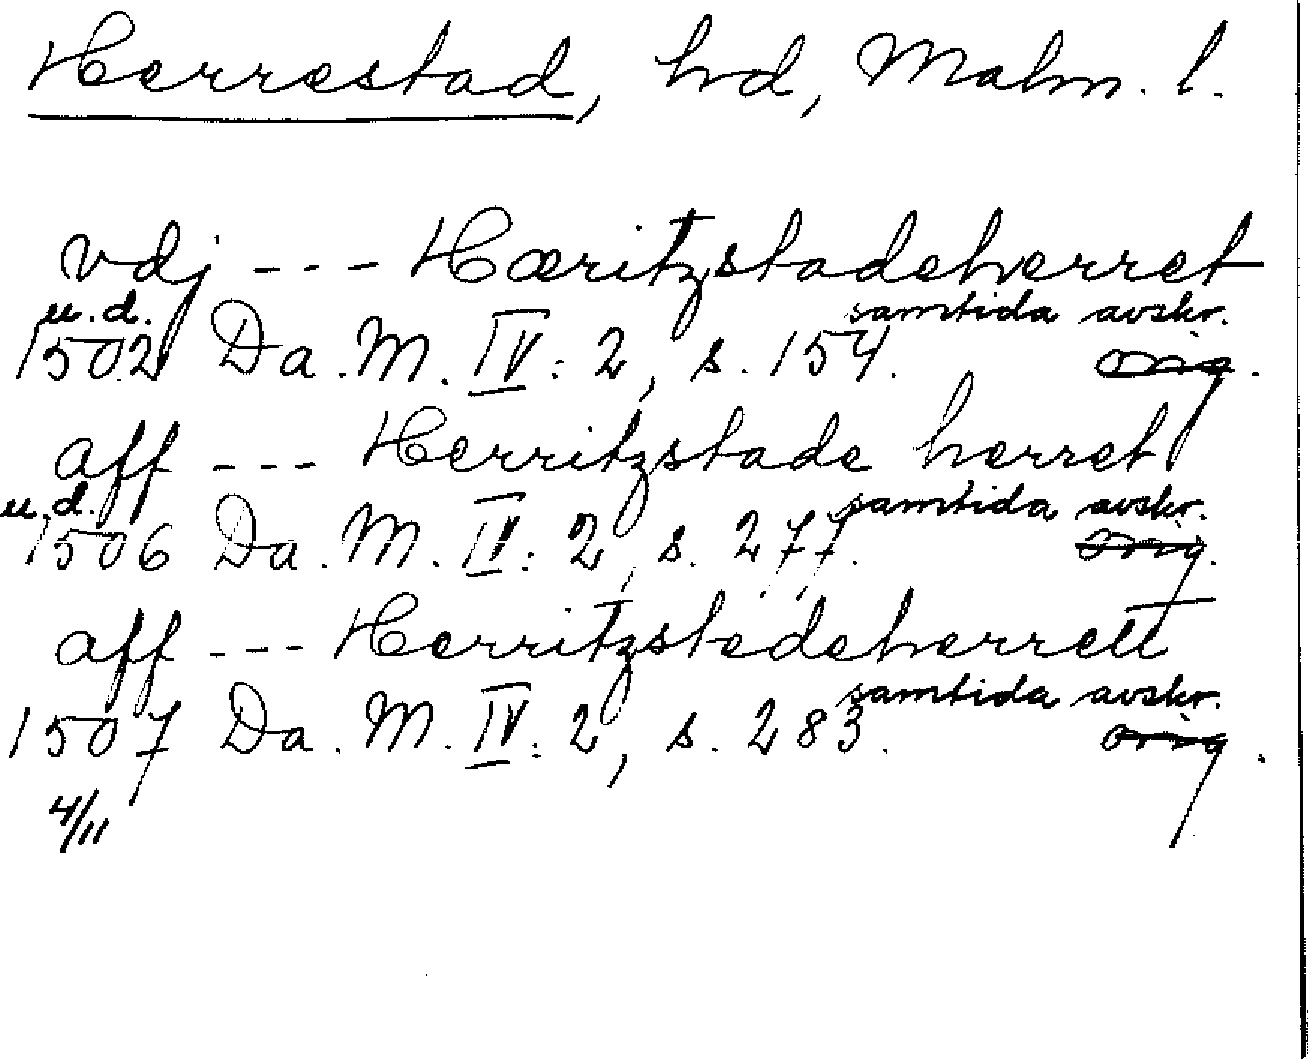 Herrestad, hd, Malm. l.
vdj --- Hæritzstadeherret
u.d. samtida avskr.
1502 Da. M. IV: 2, s. 154. orig.
aff --- Herritzstade herret
u.d. samtida avskr.
1506 Da. M. IV: 2, s. 277. orig.
aff --- Herritzstedeherrett
samtida avskr.
1507 Da. M. IV: 2, s. 283. orig.
4/11